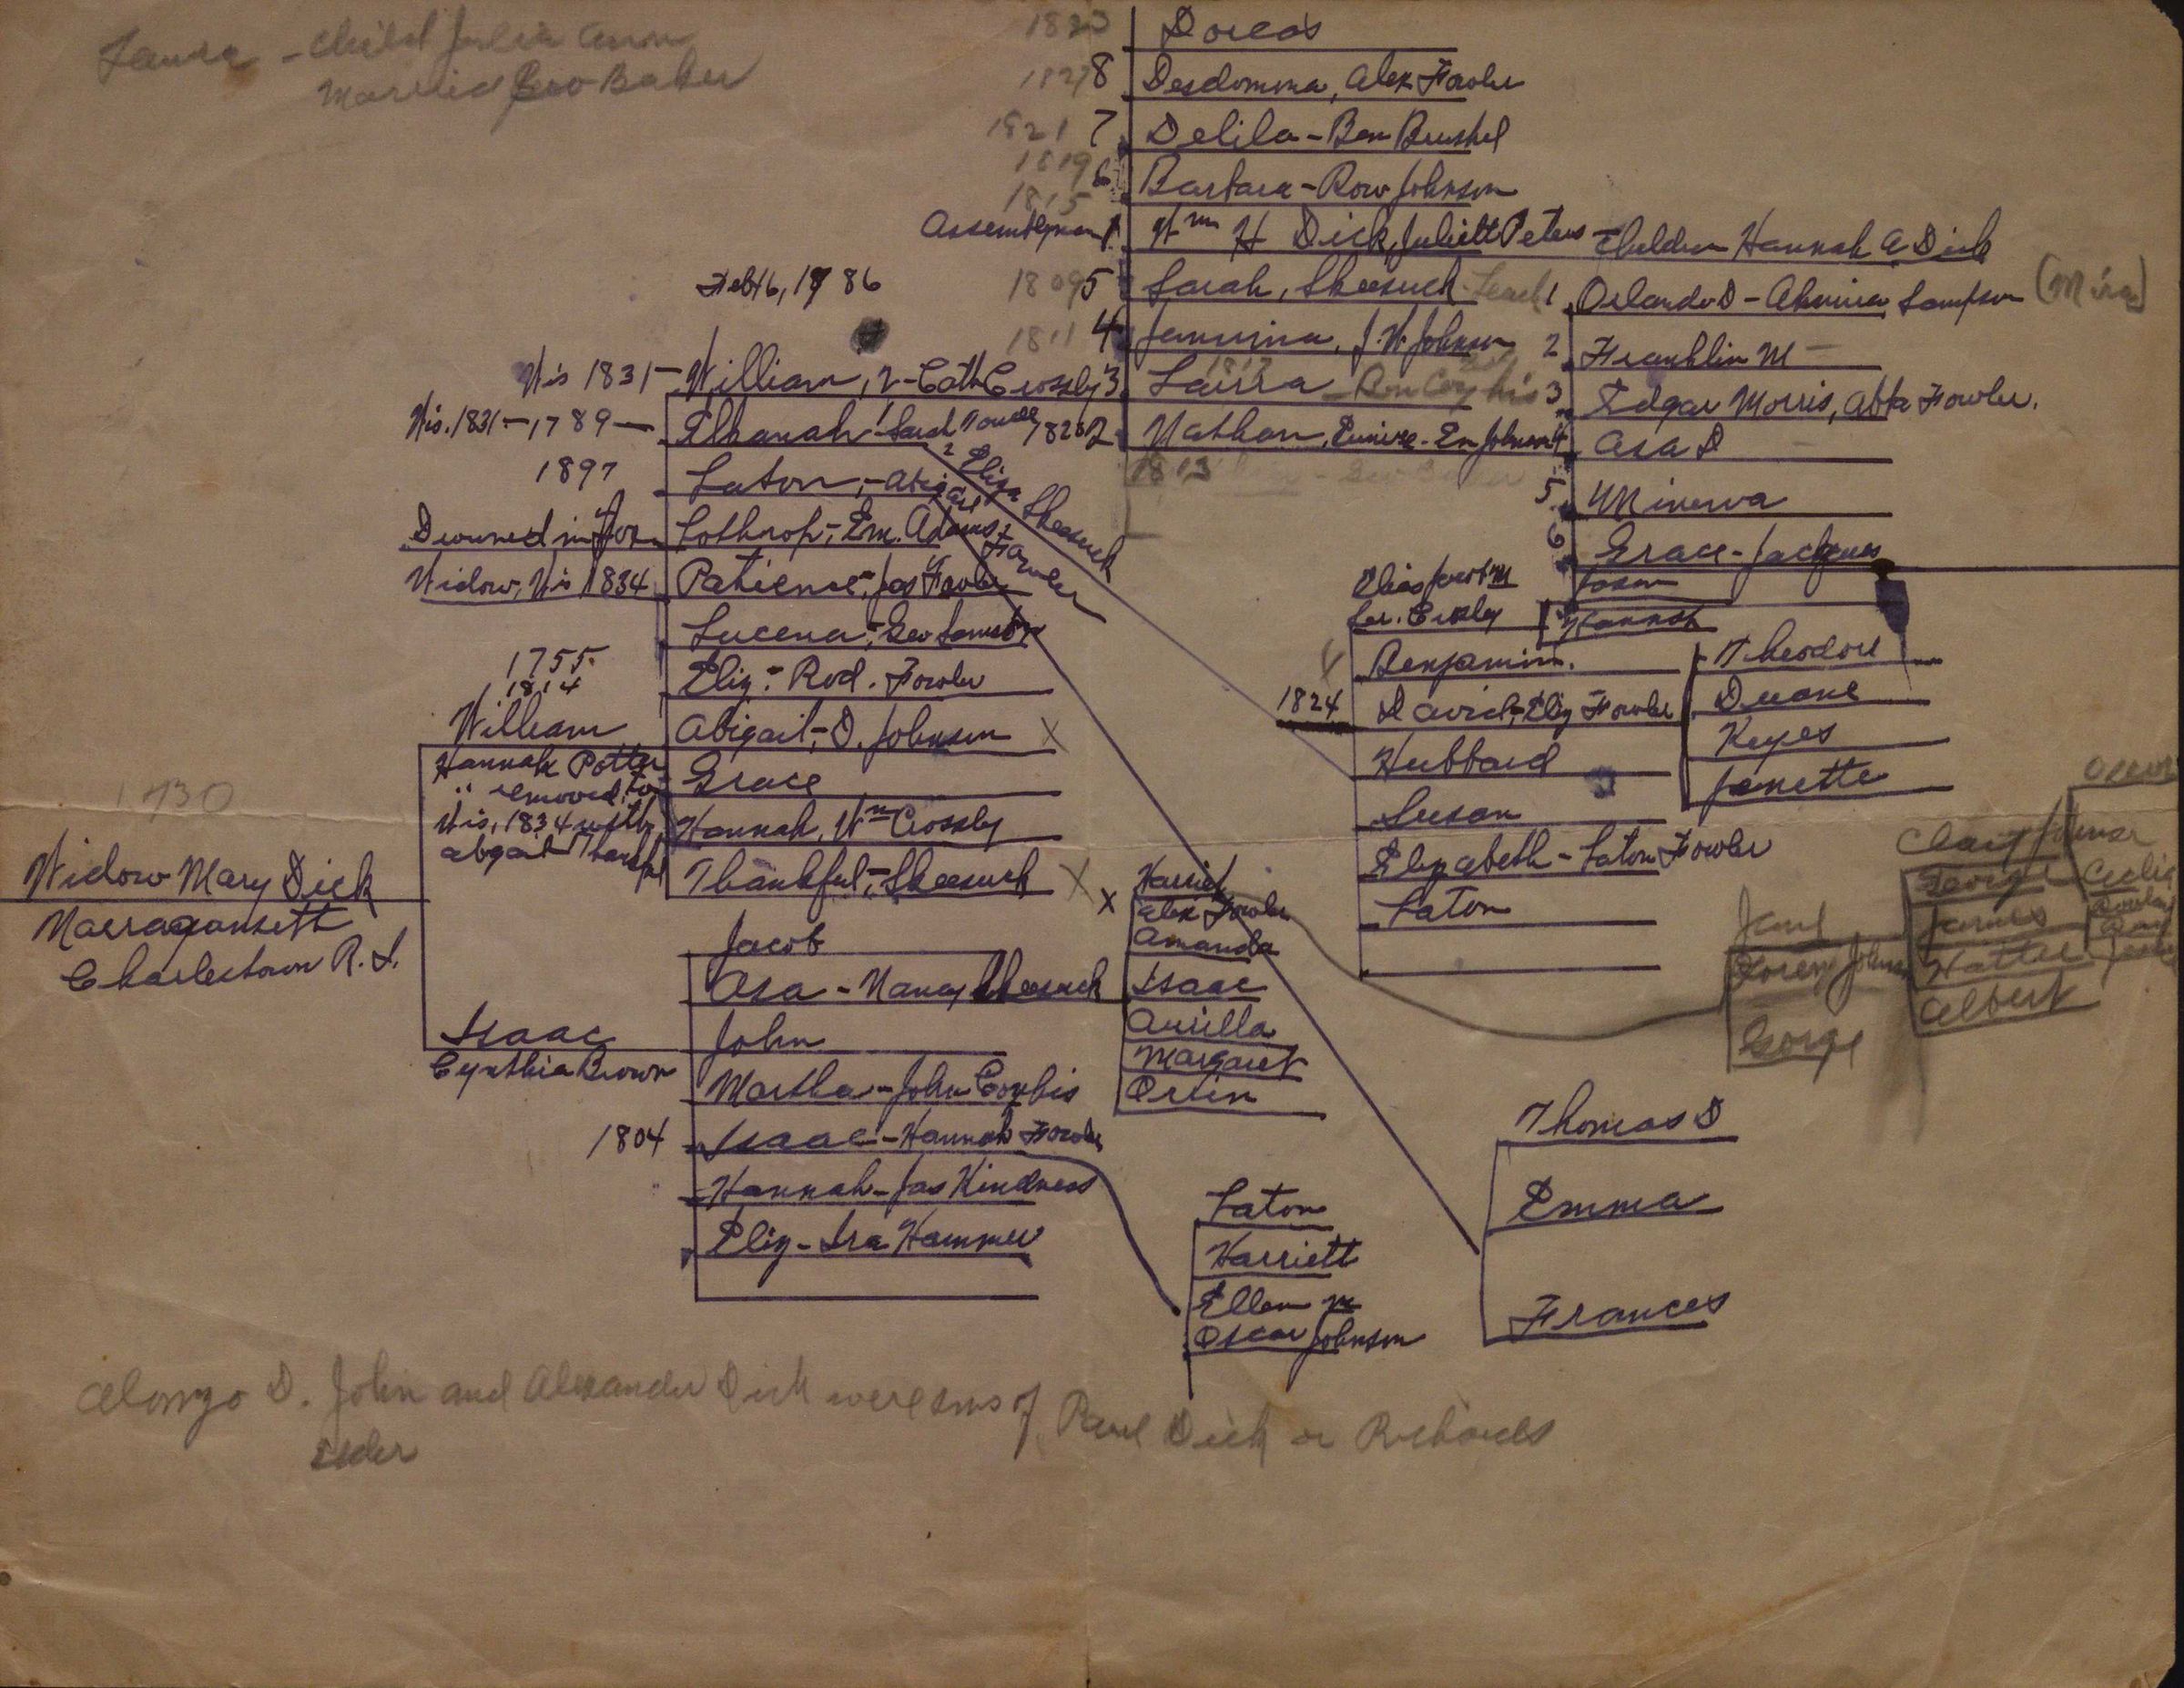 Laura - Child Julia Ann
Married Geo Baker
1823 Dorcas
1827 8 Desdomona, Alex Fowler
1821 7 Delila - Ben Brushel
1819 6 Barbara - Row Johnson
1815
Assemblyman 1 Wm H Dick, Juliett Peters - Children Hannah A Dick
1809 5 Sarah, Skeesuck
1 Orlando D - Almira Sampson (Mira)
1811 4 Jemmima, J. W. Johnson
2 Franklin M -
3 Laura
1817
3 Edgar Morris, Abba Fowler.
1826 2 Nathan, Eunice - Em Johnson
1813
4 Asa D
5 Minerva
6 Grace - Jacques
Feb 16, 1786
Wis 1831 - William, 2 - Cath Crossby
Wis. 1831 - 1789 - Elkanah 1 Sarah
2 Eliza Skeesuck
1897 Laton, - Abigail
Fowler
Drowned in Fox Lothrop, - Em. Adams
Widow, Wis 1834 Patience - Jas Fowler
Lucena - Geo Samson
Eliz - Rod. Fowler
Abigail, - D. Johnson X
Grace
Hannah, Wm Crossby
Thankful, - Skeesuck X
1755
1814
William
Hannah Potter
" removed to
Wis, 1834 with
Abgail Thankful
1730
Widow Mary Dick
Narragansett
Charlestown R. I.
Isaac
Cynthia Brown
Jacob
Asa - Nancy Skeesuck
John
Martha - John Coyhis
1804 Isaac - Hannah Fowler
Hannah - Jas Kindness
Eliz - Ira Hammer
X Harriet
Alex Fowler
Amanda
Isaac
Aurilla
Margaret
Orrin
Laton
Harriett
Ellen M
Oscar Johnson
Thomas D
Emma
Frances
Hannah
Benjamin.
1824 David, - Eliz Fowler
Hubbard
Susan
Elizabeth - Laton Fowler
Laton
Theodore
Duane
Keyes
Jenette
Jane
George
George
James
Albert
Alonzo D. John and Alexander Dick were sons of Paul Dick or Richards
Elder